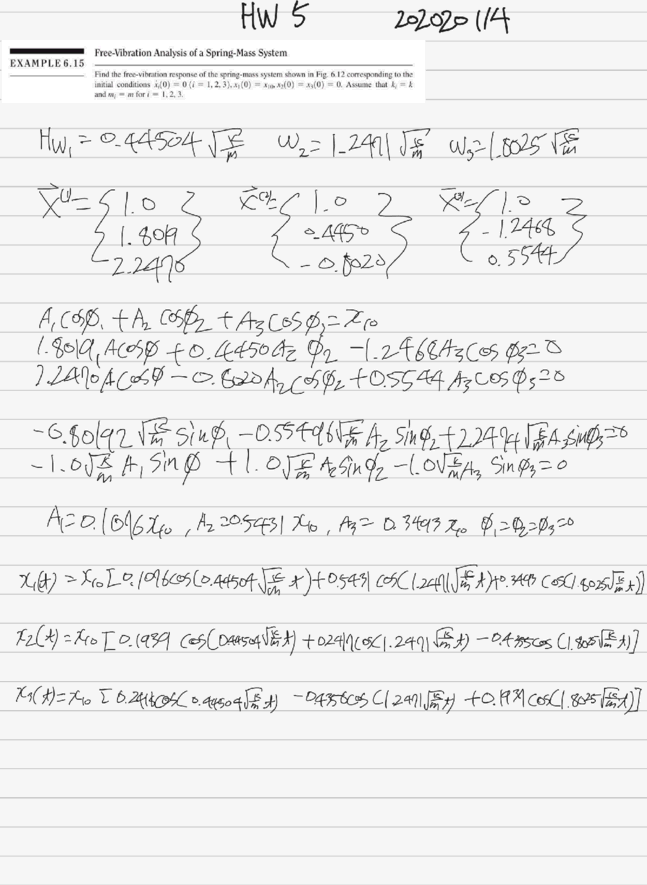 HW 5 202020114
EXAMPLE 6.15
Free-Vibration Analysis of a Spring-Mass System
Find the free-vibration response of the spring-mass system shown in Fig. 6.12 corresponding to the
initial conditions ẋᵢ(0) = 0 (i = 1, 2, 3), x₁(0) = x₁₀, x₂(0) = x₃(0) = 0. Assume that kᵢ = k
and mᵢ = m for i = 1, 2, 3.
HW₁ = 0.44504 √(k/m) ω₂ = 1.2471 √(k/m) ω₃ = 1.8025 √(k/m)
X⃗⁽¹⁾ = { 1.0 } X⃗⁽²⁾ = { 1.0 } X⃗⁽³⁾ = { 1.0 }
{ 1.8019 } { 0.4450 } { -1.2468 }
{ 2.2470 } { -0.8020 } { 0.5544 }
A₁ cosφ₁ + A₂ cosφ₂ + A₃ cosφ₃ = x₁₀
1.8019 A cosφ + 0.4450 A₂ φ₂ - 1.2468 A₃ cos φ₃ = 0
2.2470 A cosφ - 0.8020 A₂ cosφ₂ + 0.5544 A₃ cosφ₃ = 0
-0.80192 √(k/m) sinφ₁ - 0.55496 √(k/m) A₂ sinφ₂ + 2.2474 √(k/m) A₃ sinφ₃ = 0
-1.0 √(k/m) A₁ sinφ + 1.0 √(k/m) A₂ sinφ₂ - 1.0 √(k/m) A₃ sinφ₃ = 0
A₁ = 0.1076 x₁₀ , A₂ = 0.5431 x₁₀ , A₃ = 0.3493 x₁₀ φ₁ = φ₂ = φ₃ = 0
x₁(t) = x₁₀ [0.1076 cos(0.44504 √(k/m) t) + 0.5431 cos(1.2471 √(k/m) t) + 0.3493 cos(1.8025 √(k/m) t)]
x₂(t) = x₁₀ [0.1939 cos(0.44504 √(k/m) t) + 0.2417 cos(1.2471 √(k/m) t) - 0.4355 cos(1.8025 √(k/m) t)]
x₃(t) = x₁₀ [0.2418 cos(0.44504 √(k/m) t) - 0.4356 cos(1.2471 √(k/m) t) + 0.1937 cos(1.8025 √(k/m) t)]